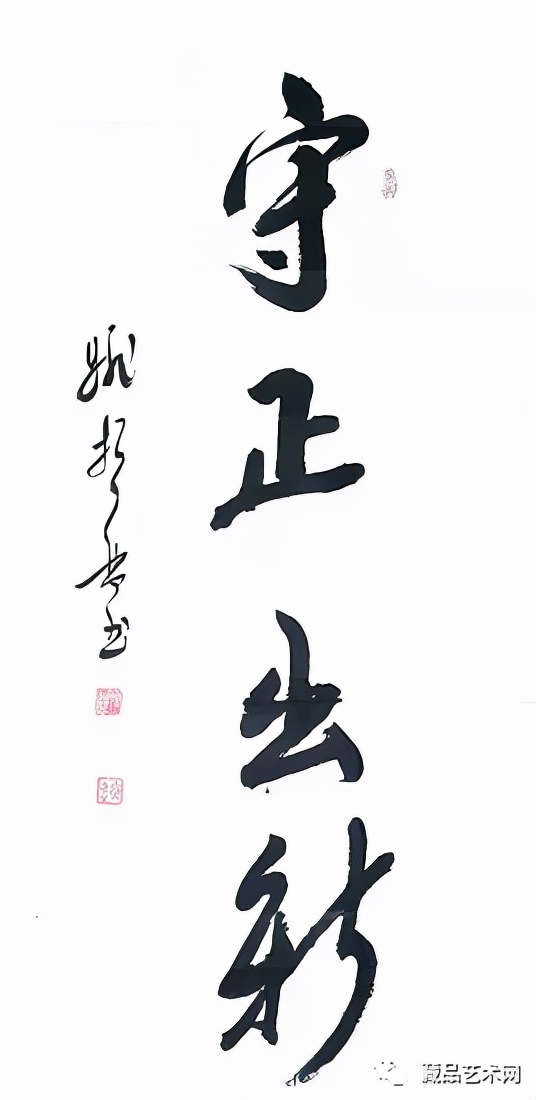 守正出新
书
藏品艺术网